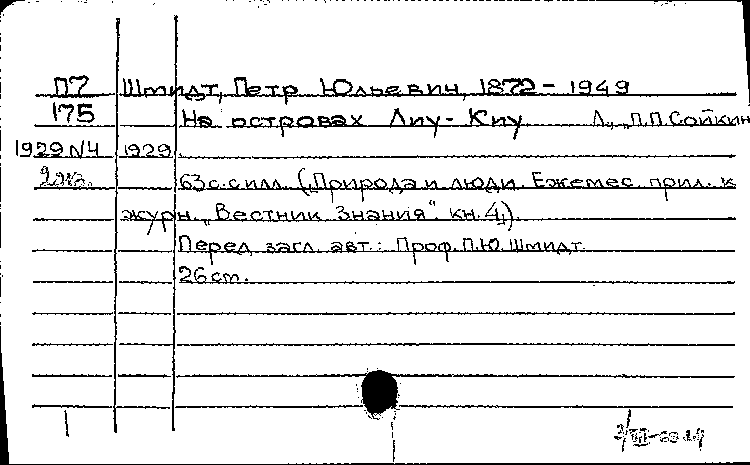 П7 Шмидт, Петр Юльевич, 1872 - 1949
175 На островах Лиу-Киу Л., „П.П.Сойкин
1929 N4 1929
2 экз. 63 с. с илл. („Природа и люди. Ежемес. прил. к
журн. „Вестник Знания“. кн. 4„).
Перед загл. авт.: Проф. П.Ю. Шмидт.
26 cm.